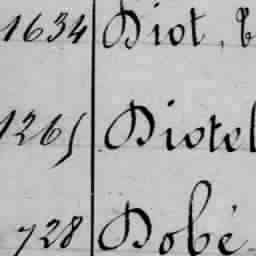 1634 Diot, E
1265 Diotel
728 Dobé